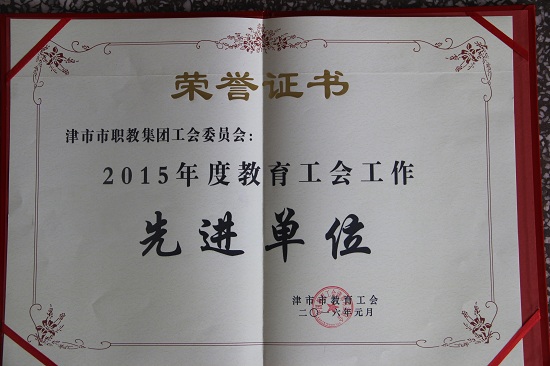 荣誉证书
津市市职教集团工会委员会：
2015年度教育工会工作
先进单位
津市市教育工会
二〇一六年元月